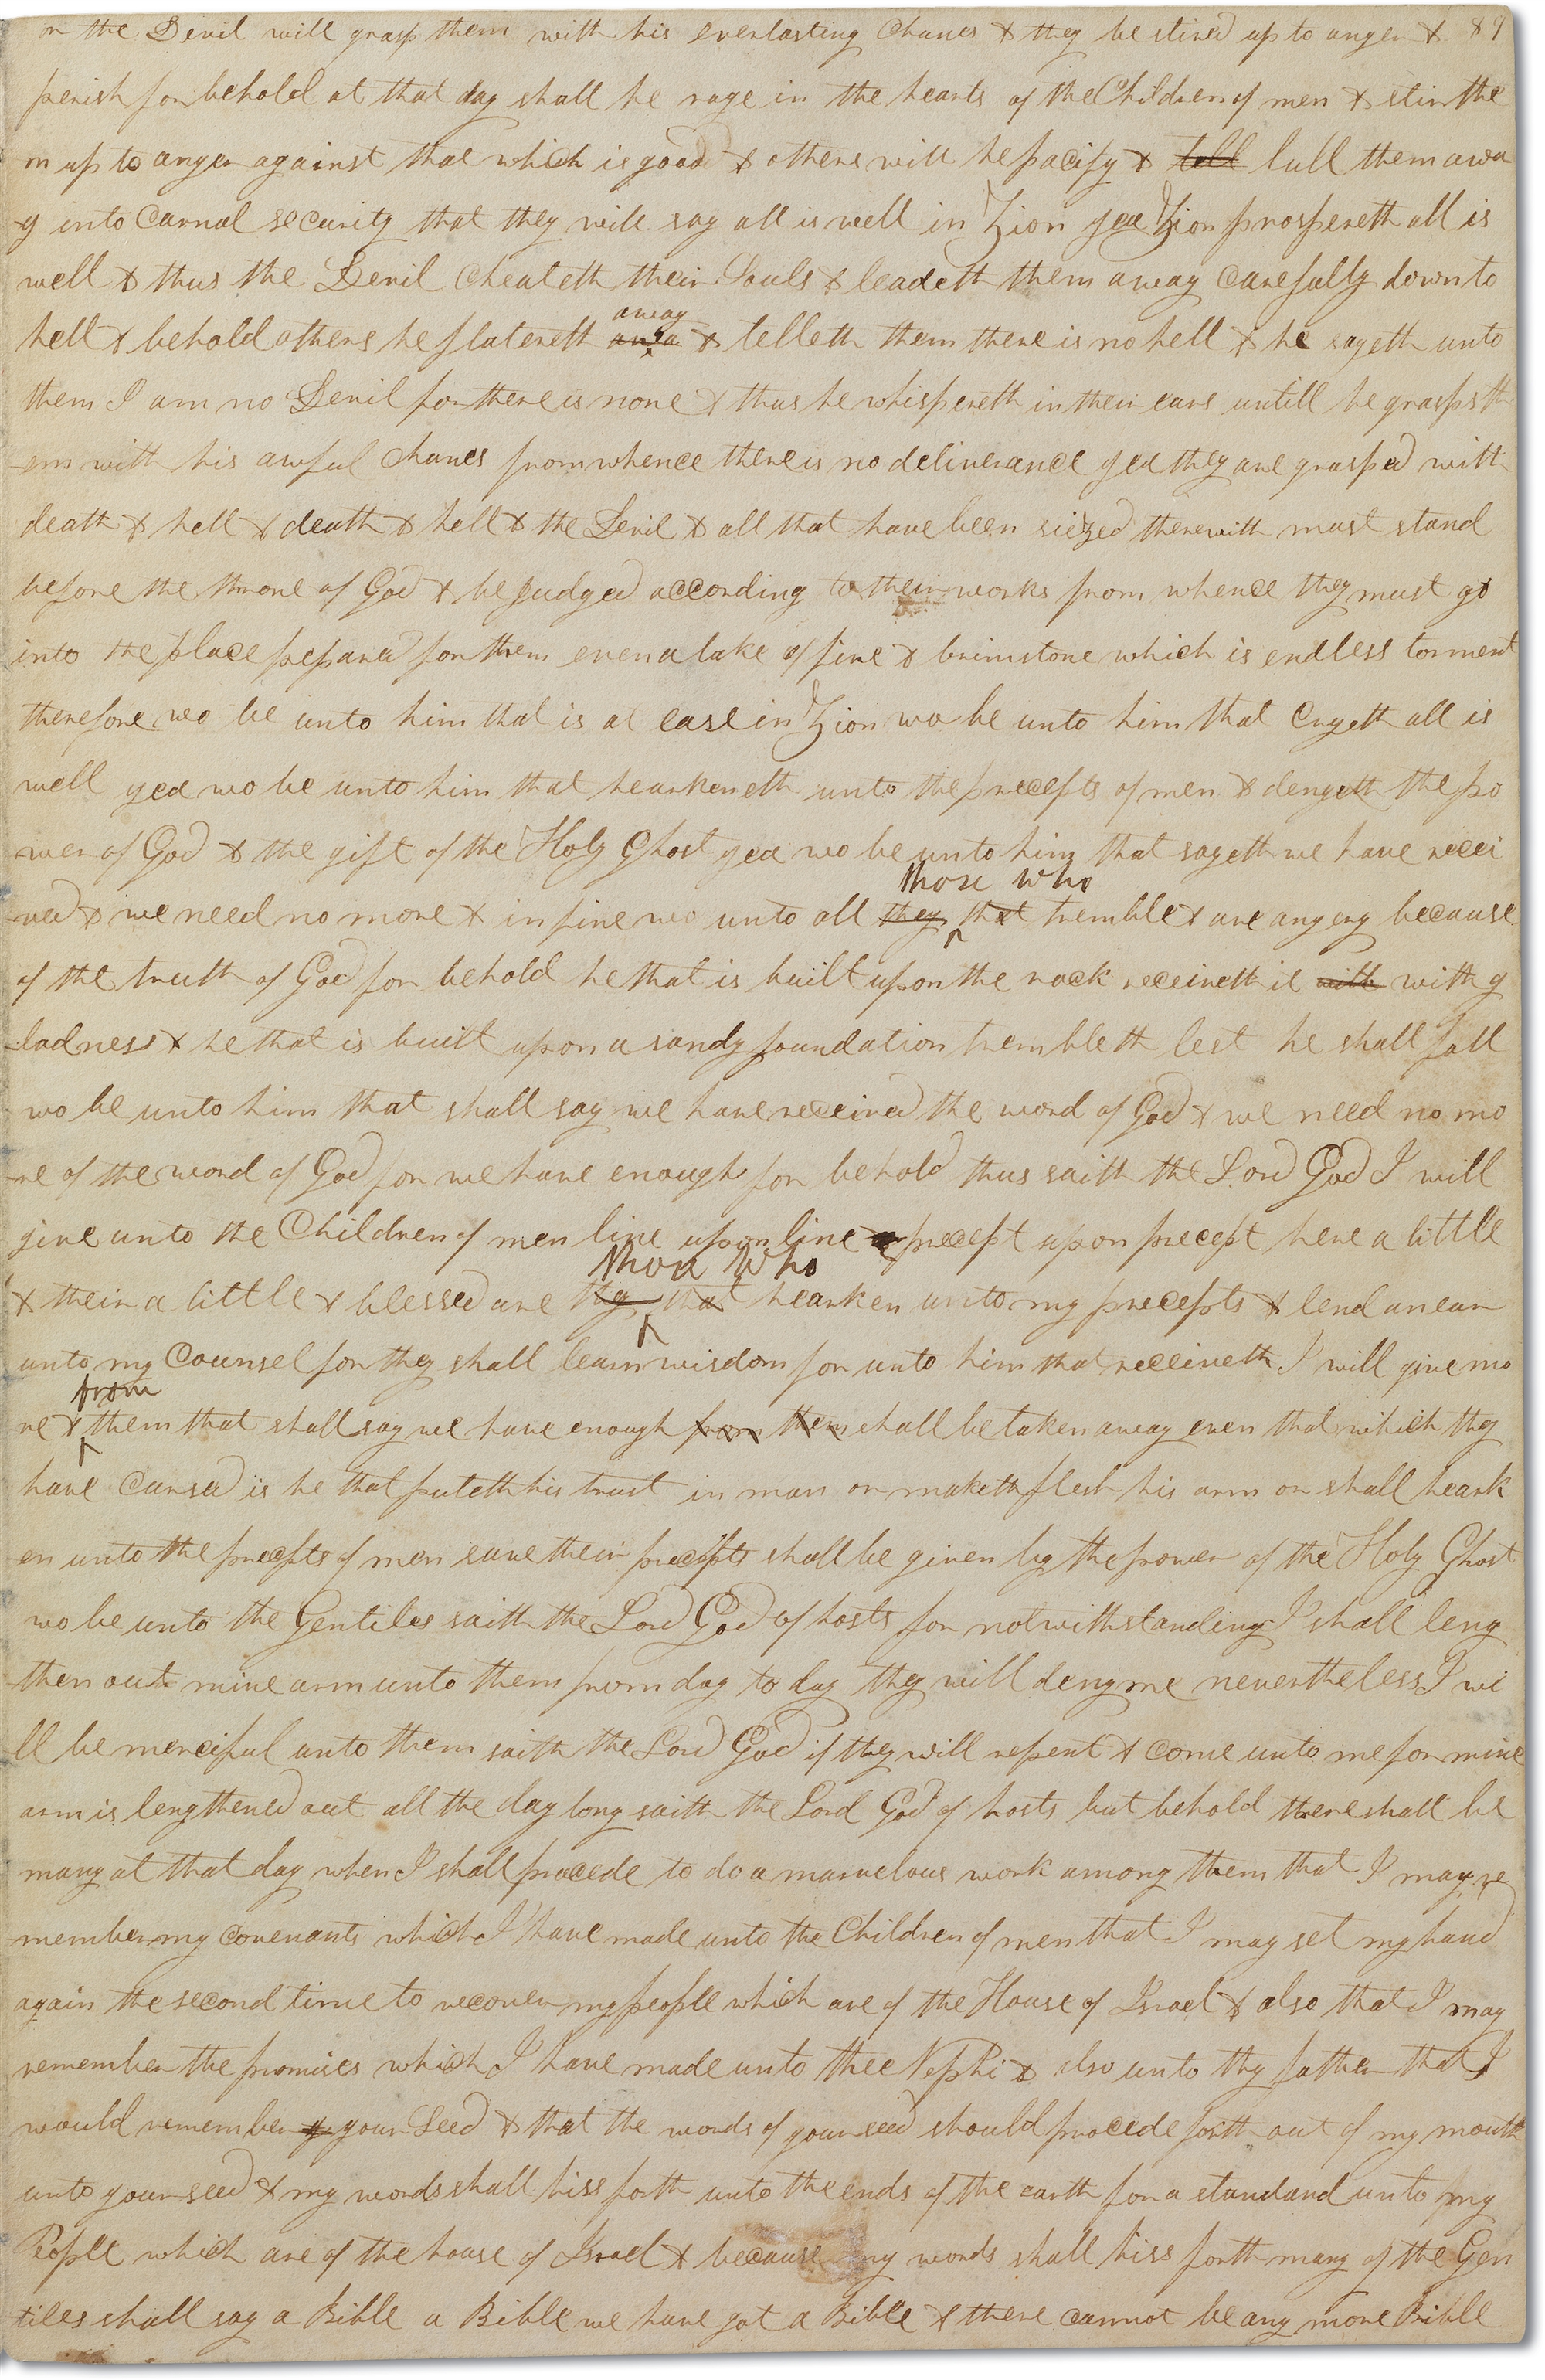 or the Devil will grasp them with his everlasting chanes & they be stired up to anger & 89
perish for behold at that day shall he rage in the hearts of the Children of men & stir the
m up to anger against that which is good & others will he pacify & tell lull them awa
y into carnal security that they will say all is well in Zion yea Zion prospereth all is
well & thus the Devil cheateth their Souls & leadeth them away carefully down to
away
hell & behold others he flatereth awa & telleth them there is no hell & he sayeth unto
them I am no Devil for there is none & thus he whispereth in their ears untill he grasps th
em with his awful chanes from whence there is no deliverance yea they are grasped with
death & hell & death & hell & the Devil & all that have been siezed therewith must stand
before the throne of God & be judged according to their works from whence they must go
into the place pepared for them even a lake of fire & brimstone which is endless torment
therefore wo be unto him that is at ease in Zion wo be unto him that cryeth all is
well yea wo be unto him that hearkeneth unto the precepts of men & denyeth the po
wer of God & the gift of the Holy Ghost yea wo be unto him that sayeth we have recei
those who
ved & we need no more & in fine wo unto all they that tremble & are angery because
of the truth of God for behold he that is built upon the rock receiveth it with with g
ladness & he that is built upon a sandy foundation trembleth lest he shall fall
wo be unto him that shall say we have received the word of God & we need no mo
re of the word of God for we have enough for behold thus saith the Lord God I will
give unto the Children of men line upon line precept upon precept here a little
those who
& their a little & blessed are they that hearken unto my precepts & lend an ear
unto my Counsel for they shall learn wisdom for unto him that receiveth I will give mo
from
re & them that shall say we have enough from them shall be taken away even that which they
have Cursed is he that puteth his trust in man or maketh flesh his arm or shall heark
en unto the precepts of men save their precepts shall be given by the power of the Holy Ghost
wo be unto the Gentiles saith the Lord God of hosts for notwithstanding I shall leng
then out mine arm unto them from day to day they will deny me nevertheless I wi
ll be merciful unto them saith the Lord God if they will repent & come unto me for mine
arm is lengthened out all the day long saith the Lord God of hosts but behold there shall be
many at that day when I shall procede to do a marvelous work among them that I may re
member my covenants which I have made unto the Children of men that I may set my hand
again the second time to recover my people which are of the House of Israel & also that I may
remember the promises which I have made unto thee Nephi & also unto thy father that I
would remember y your Seed & that the words of your seed should procede forth out of my mouth
unto your seed & my words shall hiss forth unto the ends of the earth for a standard unto my
People which are of the house of Israel & because my words shall hiss forth many of the Gen
tiles shall say a Bible a Bible we have got a Bible & there cannot be any more Bible